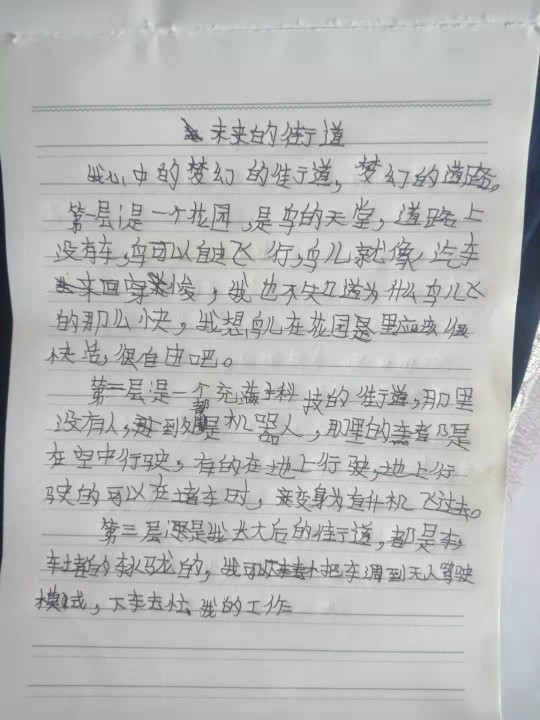 未来的街道
我心中的梦幻的街道，梦幻的道路。
第一层是一个花园，是鸟的天堂，道路上
没有车，鸟可以自由飞行，鸟儿就像汽车
来回穿梭，我也不知道为什么鸟儿飞
的那么快，我想鸟儿在花园里应该很
快活，很自由吧。
第二层是一个充满科技的街道，那里
没有人，到处都是机器人，那里的都是
在空中行驶，有的在地上行驶，地上行
驶的可以在堵车时，变身为直升机飞过去。
第三层是我长大后的街道，都是车，
车堵的车水马龙的，我可以把车调到无人驾驶
模式，下车去忙我的工作